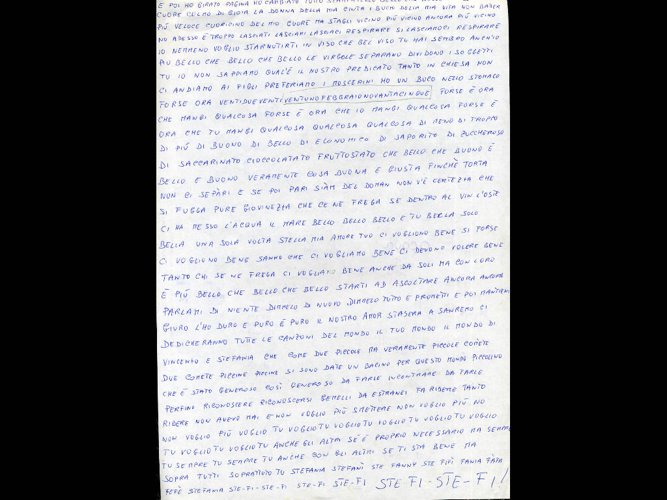 E POI HO GIRATO PAGINA HO CAMBIATO TUTTO
CUORE COLMO DI GIOIA LA DONNA DELLA MIA I BUCHI DELLA MIA VITA NON BATTER
PIÙ VELOCE CUORICINO DEL MIO CUORE MA STAGLI VICINO PIÙ VICINO ANCORA PIÙ VICINO
NO ADESSO È TROPPO LASCIATI LASCIAMI LASCIACI RESPIRARE SÌ LASCIAMOCI RESPIRARE
IO NEMMENO VOGLIO STARNUTIRTI IN VISO CHE BEL VISO TU HAI SEMBRO ANCH'IO
PIÙ BELLO CHE BELLO CHE BELLO LE VIRGOLE SEPARANO DIVIDONO I SOGGETTI
TU IO NON SAPPIAMO QUAL'È IL NOSTRO PREDICATO TANTO IN CHIESA NON
CI ANDIAMO AI FIGLI PREFERIAMO I MOSCERINI HO UN BUCO NELLO STOMACO
FORSE ORA VENTIDUEVENTI VENTUNOFEBBRAIONOVANTACINQUE FORSE È ORA
CHE MANGI QUALCOSA FORSE È ORA CHE IO MANGI QUALCOSA FORSE È
ORA CHE TU MANGI QUALCOSA QUALCOSA QUALCOSA DI MENO DI TROPPO
DI PIÙ DI BUONO DI BELLO DI ECONOMICO DI SAPORITO DI ZUCCHEROSO
DI SACCARINATO CIOCCOLATATO FRUTTOSTATO CHE BELLO CHE BUONO È
BELLO E BUONO VERAMENTE COSA BUONA E GIUSTA FINCHÈ TORTA
NON CI SEPARI E SE POI PARI SIAM DEL DOMAN NON V'È CERTEZZA CHE
SI FUGGA PURE GIOVINEZZA CHE CE NE FREGA SE DENTRO AL VIN L'OSTE
CI HA MESSO L'ACQUA IL MARE BELLO BELLO BELLO E TU BERLA SOLO
BELLA UNA SOLA VOLTA STELLA MIA AMORE TUO CI VOGLIONO BENE SI FORSE
CI VOGLIONO BENE SANNO CHE CI VOGLIAMO BENE CI DEVONO VOLERE BENE
TANTO CHI SE NE FREGA CI VOGLIAMO BENE ANCHE DA SOLI MA CON LORO
È PIÙ BELLO CHE BELLO CHE BELLO STARTI AD ASCOLTARE ANCORA ANCORA
PARLAMI DI NIENTE DIMMELO DI NUOVO DIMMELO TUTTO E PROMETTI E POI MANTIENI
GIURO L'HO DURO E PURO È PURO IL NOSTRO AMOR STASERA A SANREMO CI
DEDICHERANNO TUTTE LE CANZONI DEL MONDO IL TUO MONDO IL MONDO DI
VINCENZO E STEFANIA CHE COME DUE PICCOLE MA VERAMENTE PICCOLE COMETE
DUE COMETE PICCINE PICCINE SI SONO DATE UN BACINO PER QUESTO MONDO PICCOLINO
CHE È STATO GENEROSO COSÌ GENEROSO DA FARLE INCONTRARE DA FARLE
PERFINO RICONOSCERE RICONOSCERSI GEMELLI DA ESTRANEI FA RIDERE TANTO
RIDERE NON AVEVO MAI E NON VOGLIO PIÙ SMETTERE NON VOGLIO PIÙ NO
NON VOGLIO PIÙ VOGLIO TU VOGLIO TU VOGLIO TU VOGLIO TU VOGLIO TU VOGLIO
TU VOGLIO TU VOGLIO TU ANCHE GLI ALTRI SE È PROPRIO NECESSARIO MA SEMPRE
TU SEMPRE TU SEMPRE TU ANCHE CON GLI ALTRI SE TI STA BENE MA
SOPRA TUTTI SOPRATTUTTO TU STEFANIA STEFANÌ STE FANNY STE FIFÌ FANIA FATA
FEFÈ STEFANIA STE-FI-STE-FI STE-FI STE-FI STE FI-STE-FI!